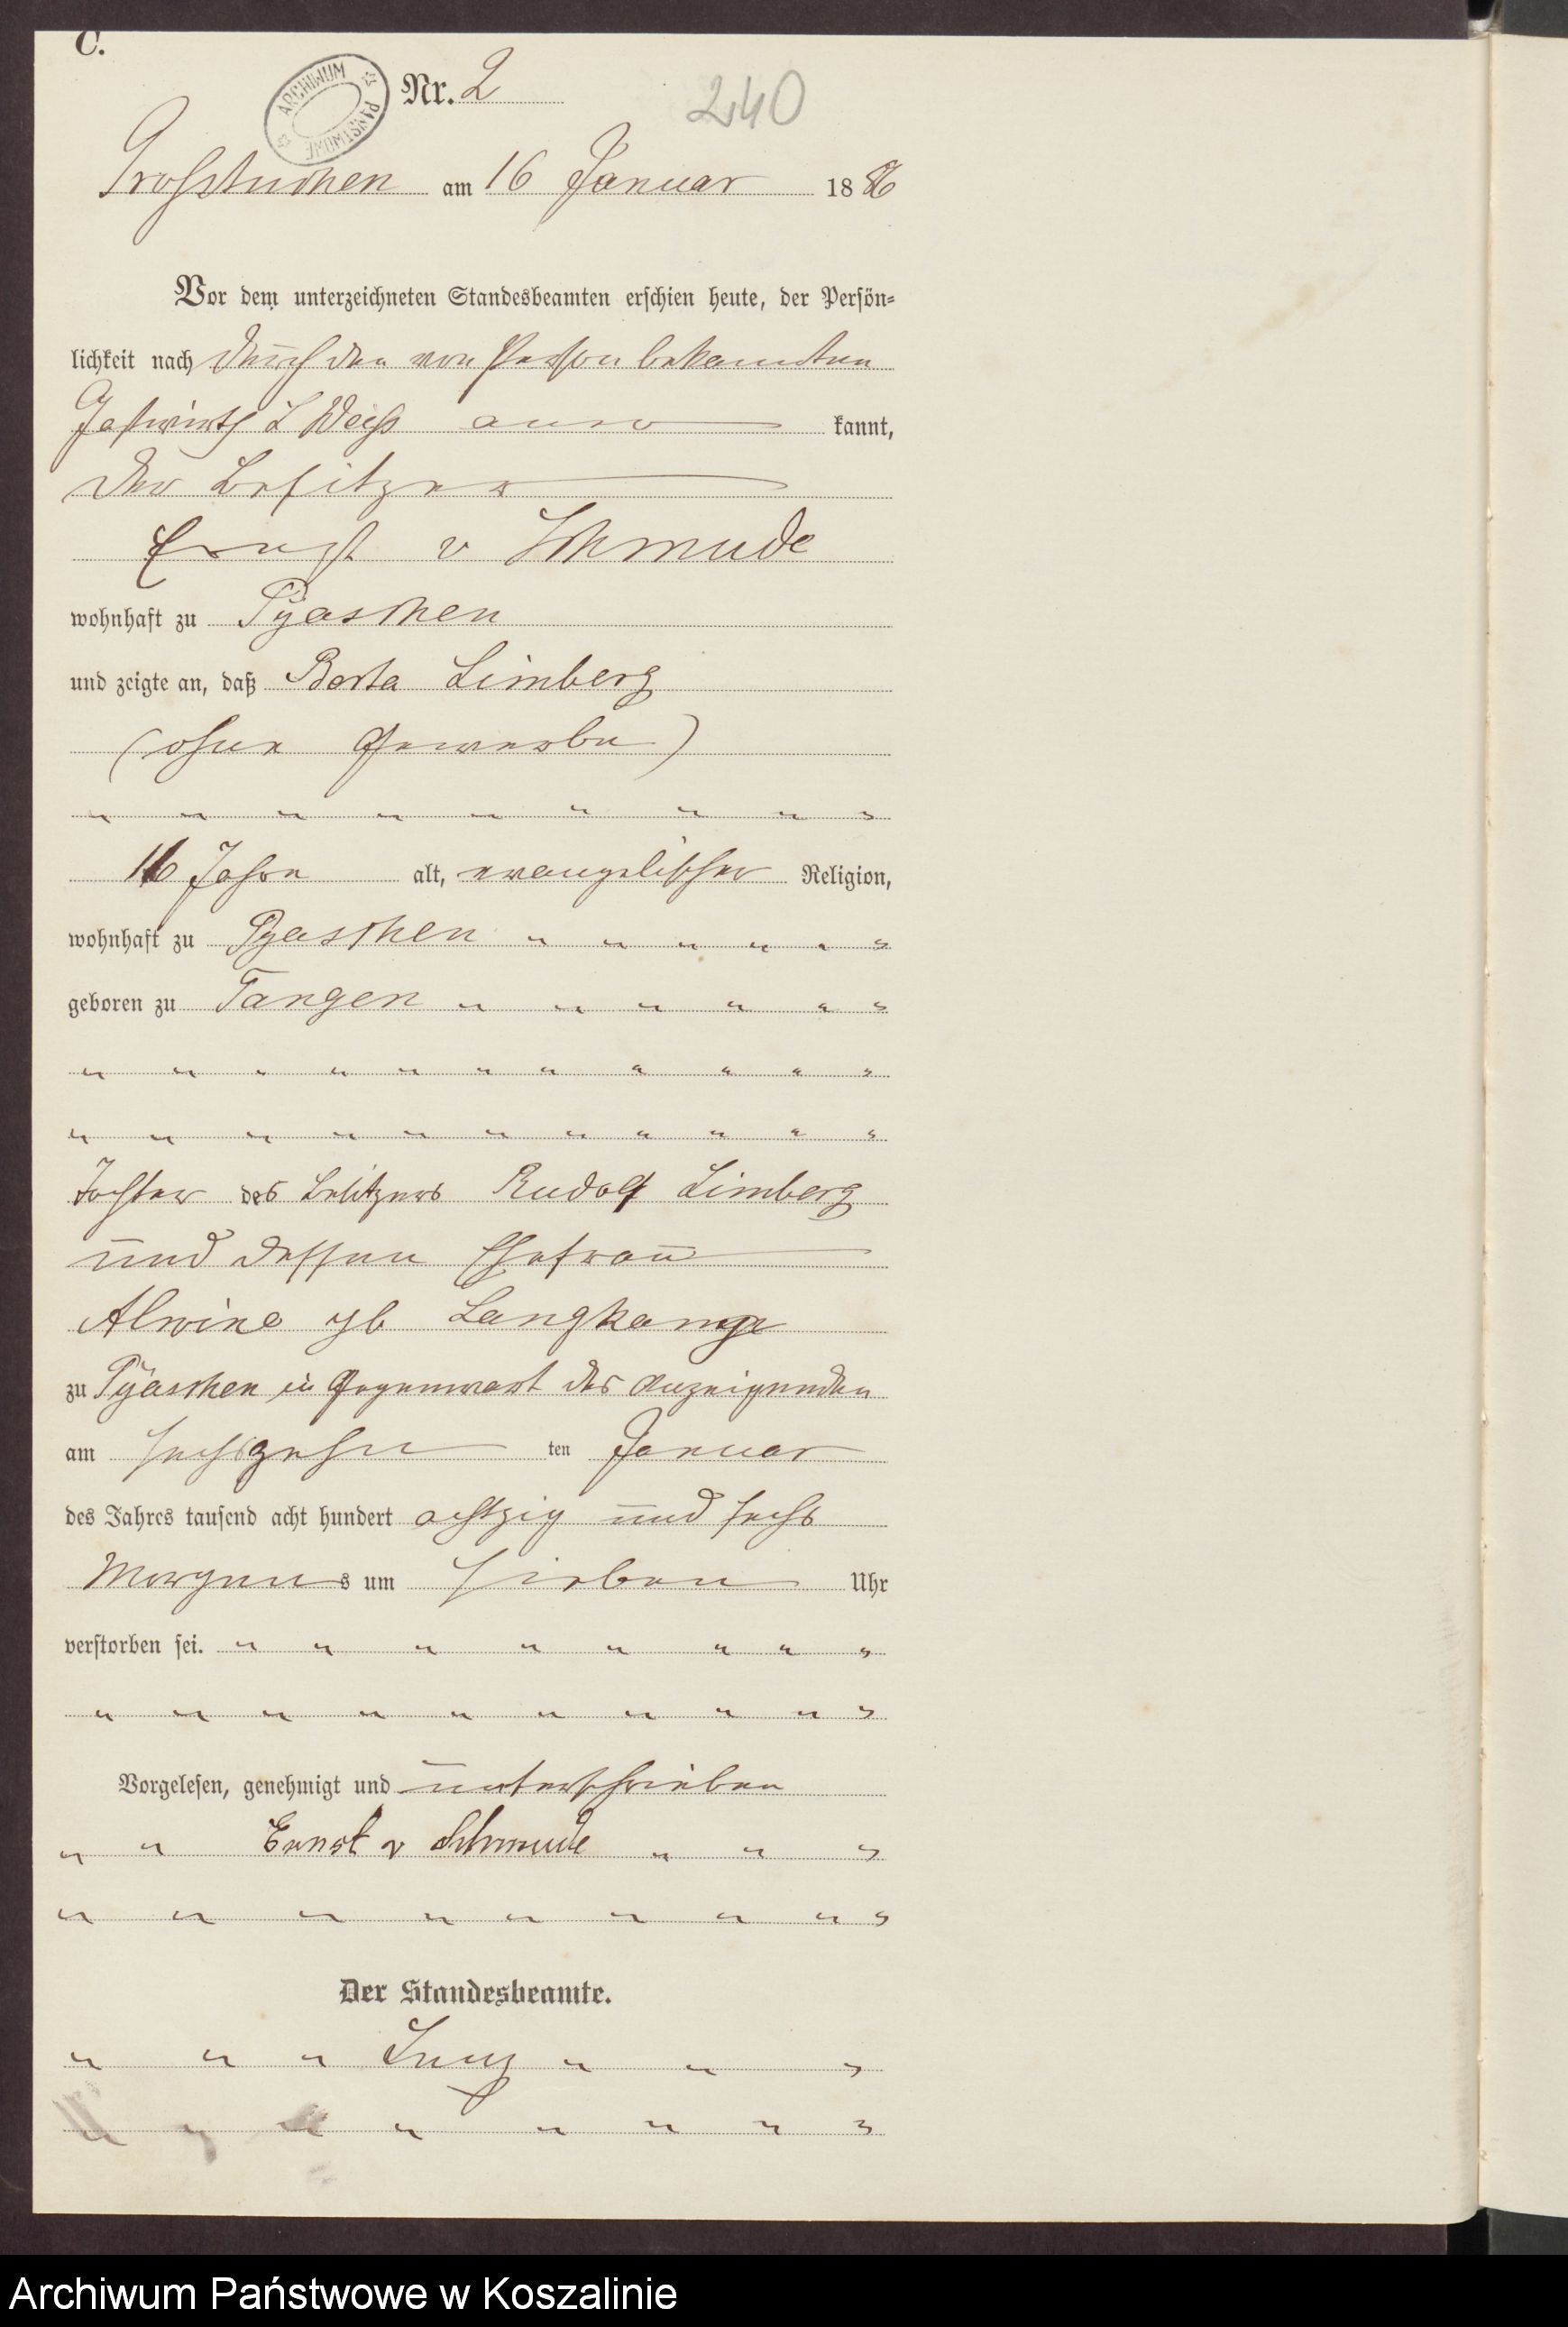 C.
ARCHIWUM PAŃSTWOWE
Nr. 2
240
Großtuchen am 16 Januar 1886
Vor dem unterzeichneten Standesbeamten erschien heute, der Persön=
lichkeit nach durch den von Person bekannten
Gastwirth L Weiß aner kannt,
der Besitzer
Ernst v Schmude
wohnhaft zu Pyaschen
und zeigte an, daß Berta Limberg
(ohne Gewerbe)
16 Jahre alt, evangelischer Religion,
wohnhaft zu Pyaschen
geboren zu Tangen
Tochter des Besitzers Rudolf Limberg
und dessen Ehefrau
Alwine gb
zu Pyaschen in Gegenwart des Anzeigenden
am sechszehn ten Januar
des Jahres tausend acht hundert achtzig und sechs
Morgens um sieben Uhr
verstorben sei.
Vorgelesen, genehmigt und unterschrieben
Ernst v Schmude
Der Standesbeamte.
Archiwum Państwowe w Koszalinie